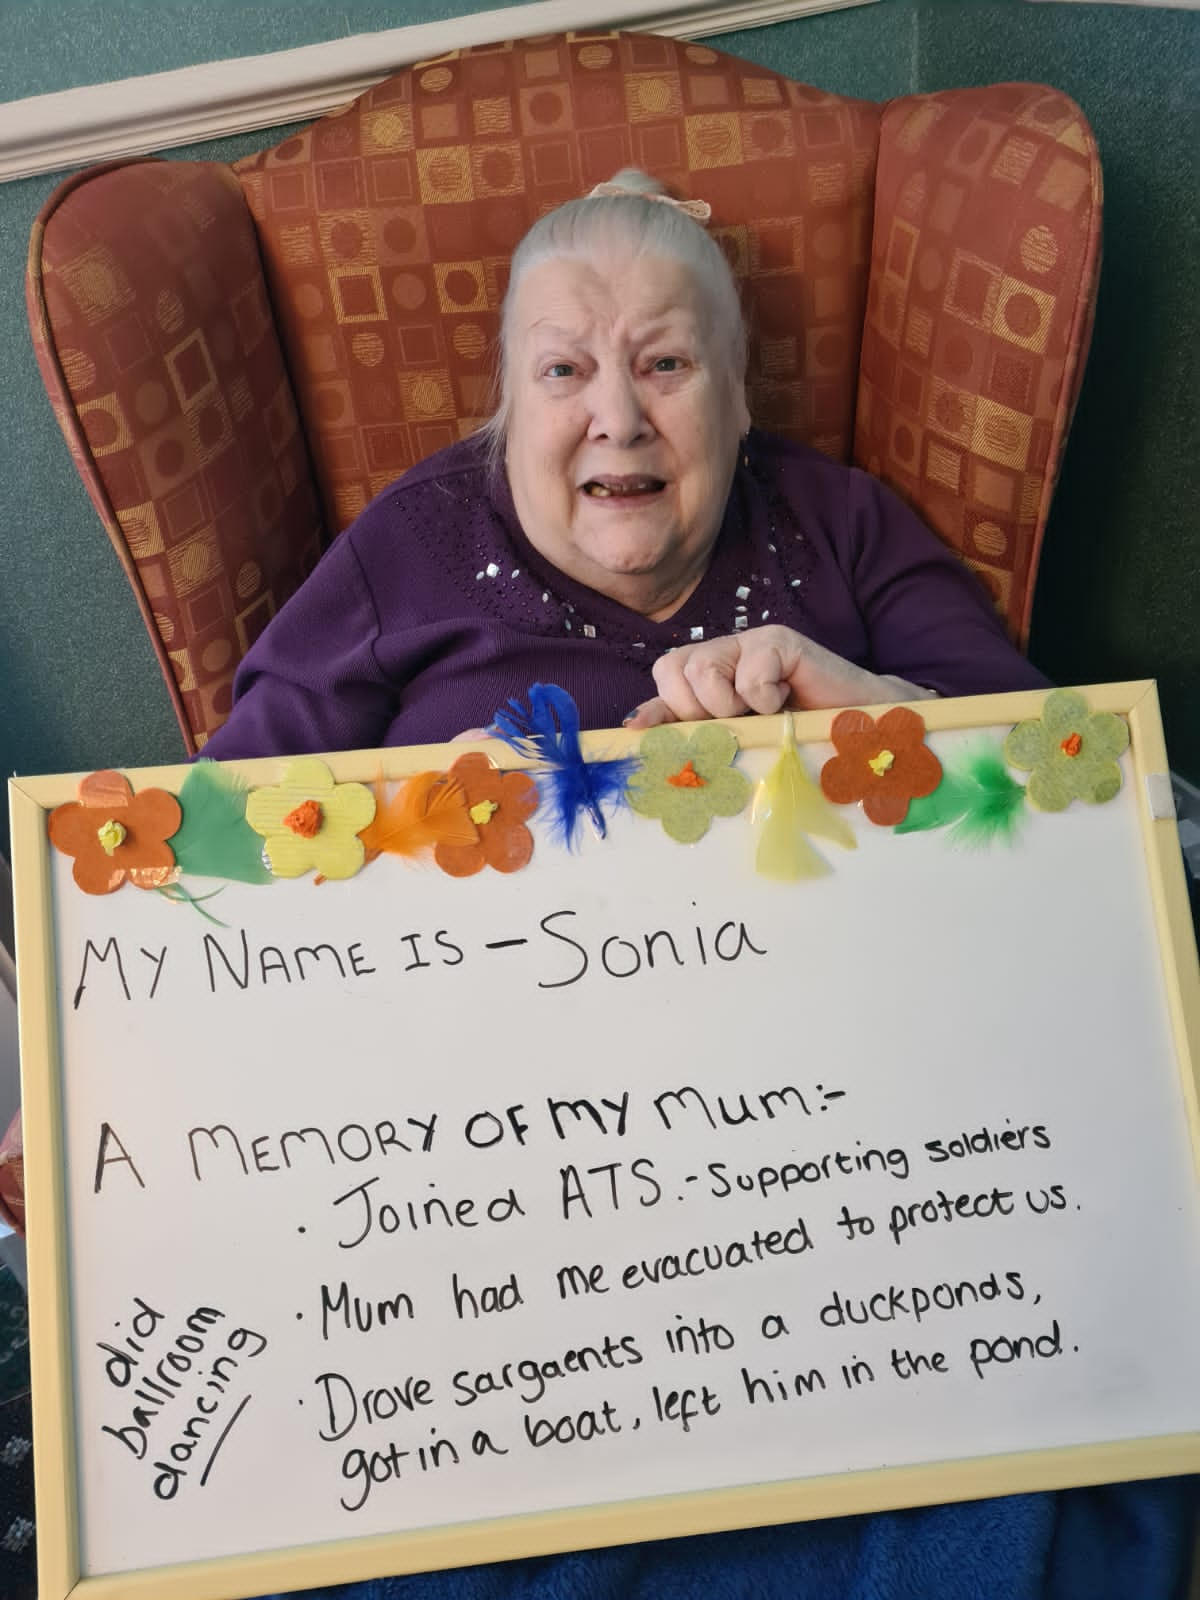 MY NAME IS - Sonia
A MEMORY OF MY MUM:-
· Joined ATS.- Supporting soldiers
· Mum had me evacuated to protect us.
· Drove sargaents into a duckponds,
got in a boat, left him in the pond.
did
ballroom
dancing